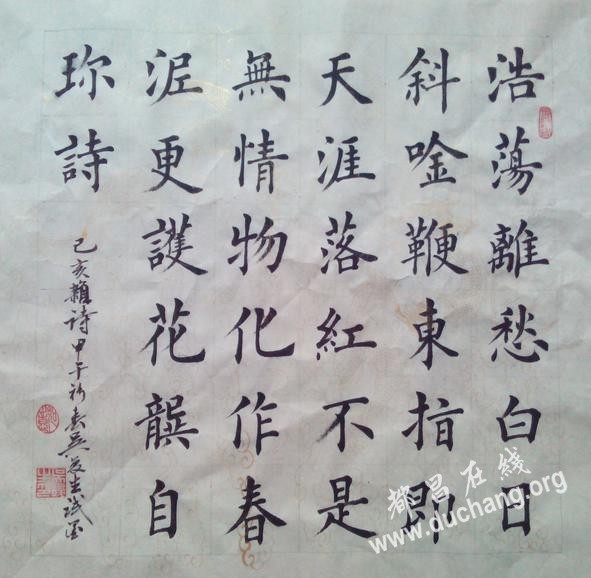 浩蕩離愁白日
斜唫鞭東指即
天涯落紅不是
無情物化作春
泥更護花龔自
珍詩
己亥雜诗甲午初春
都昌在綫
www.duchang.org